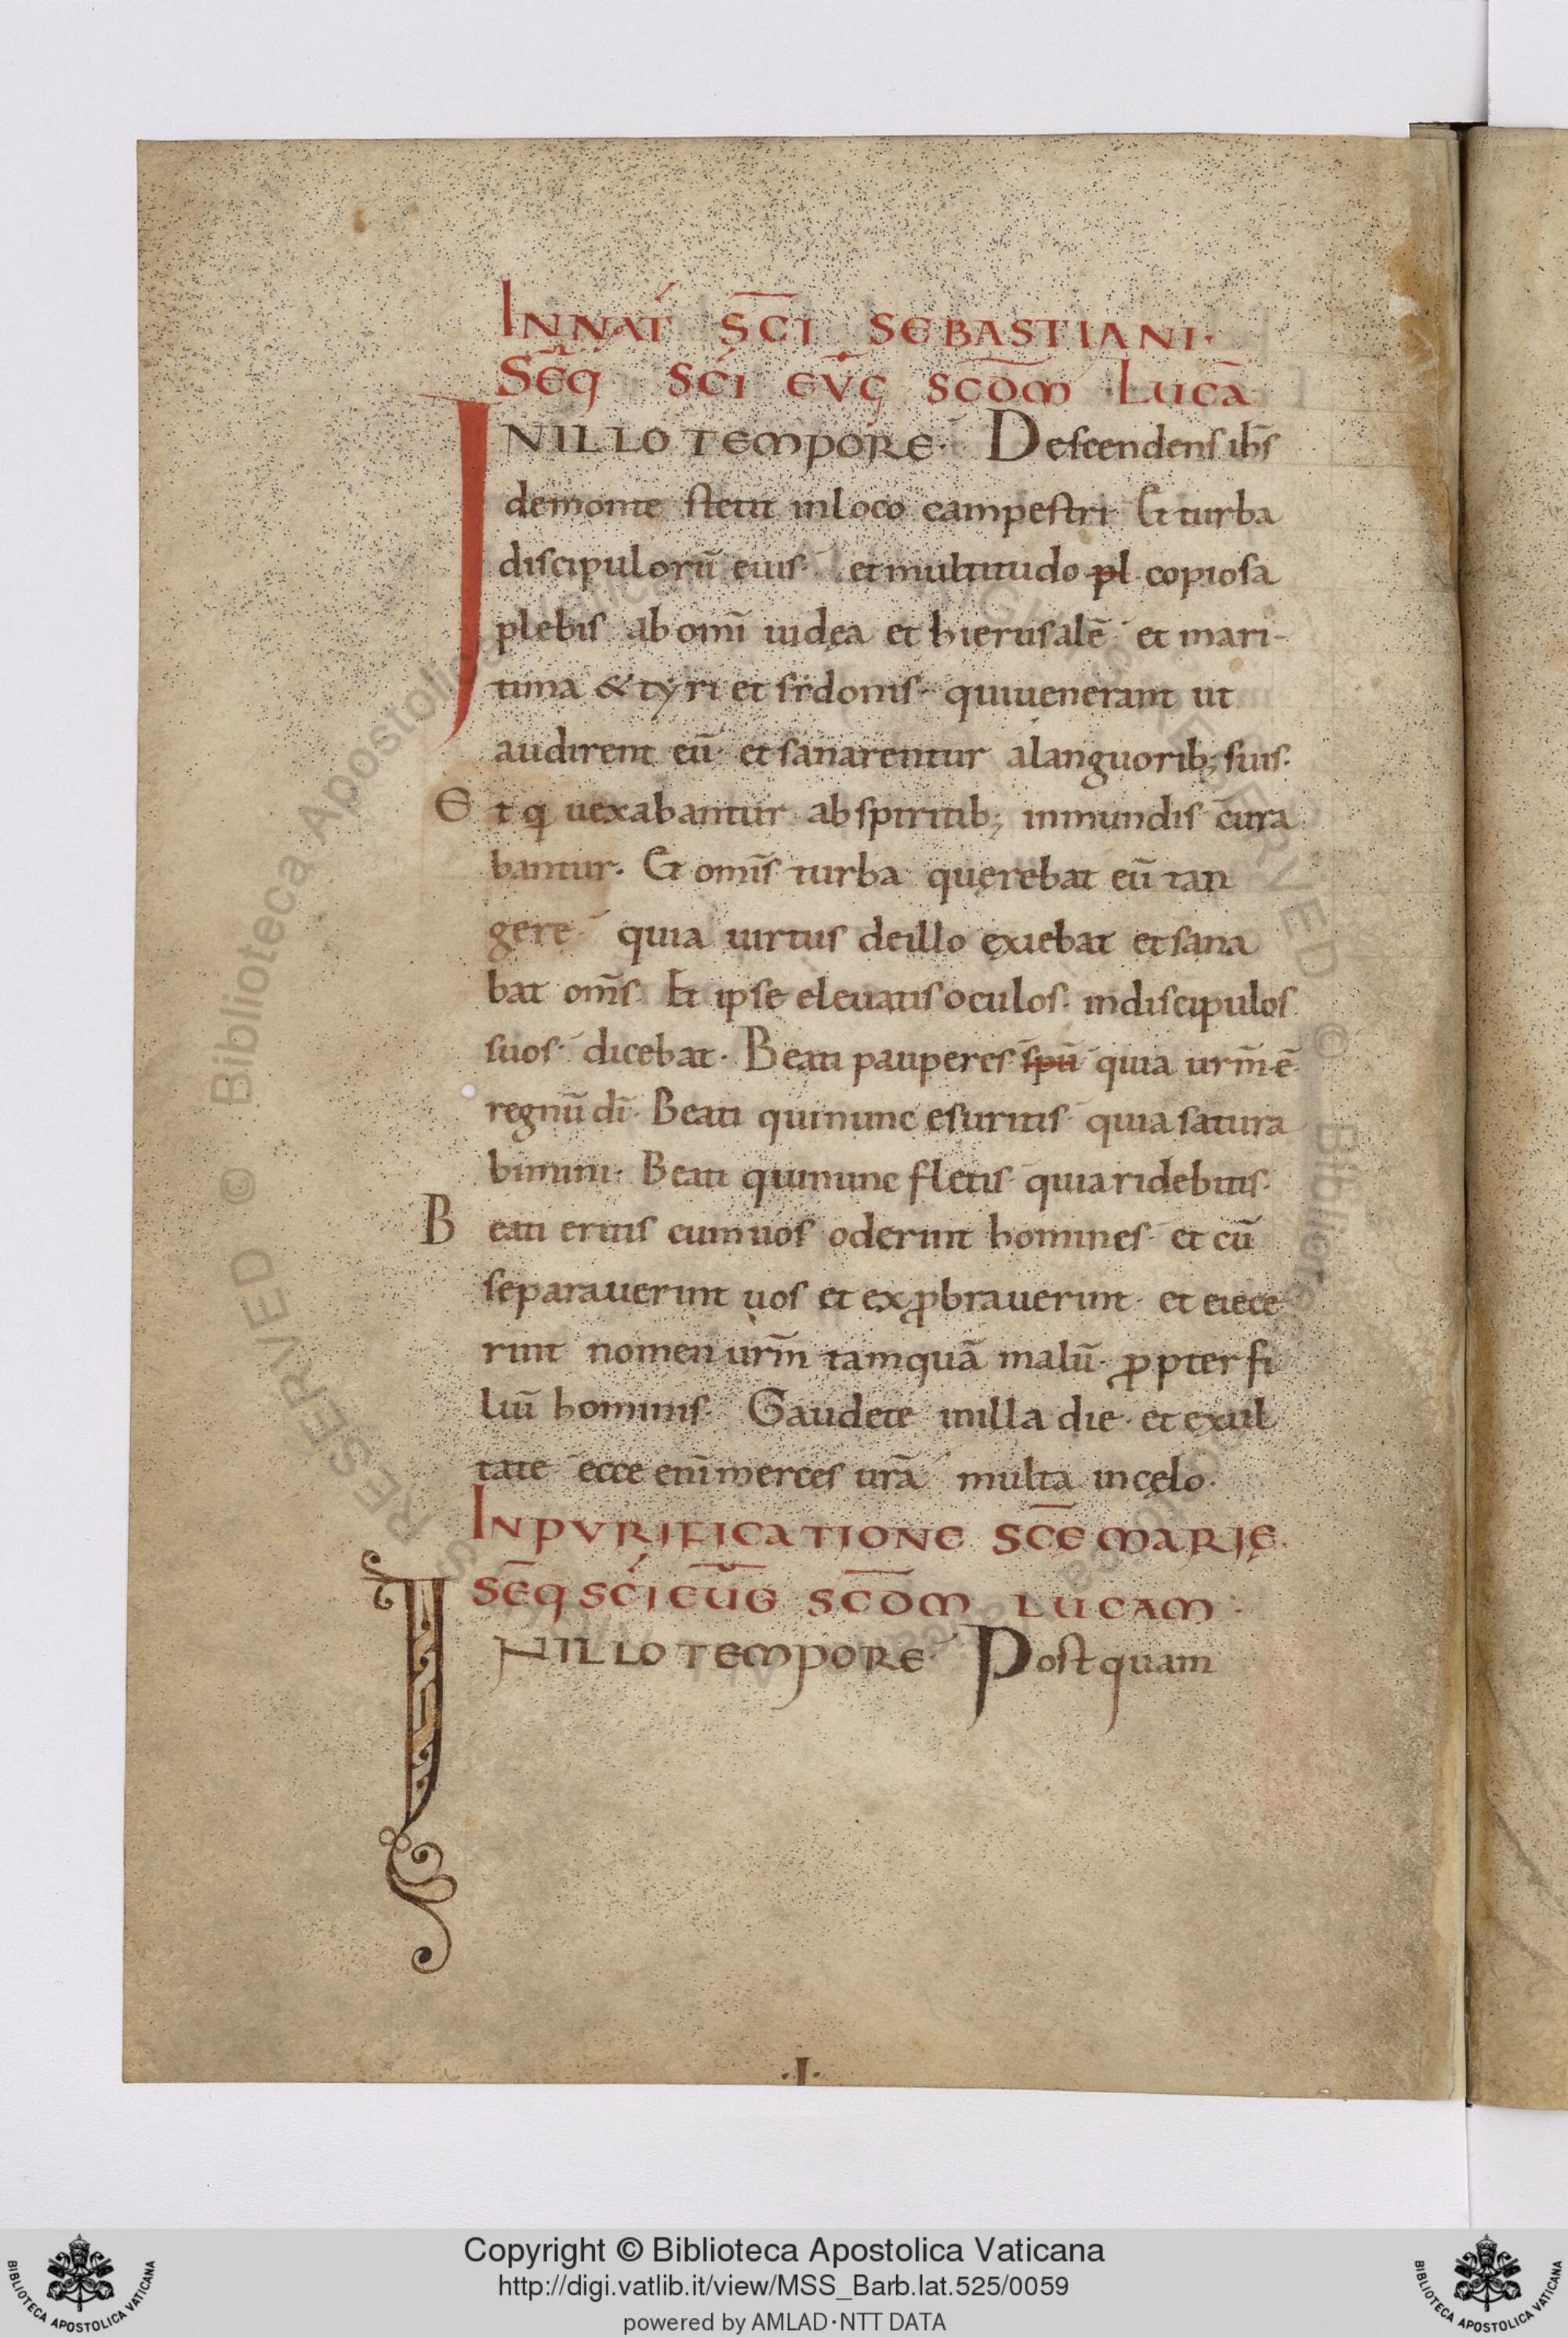 INNAT̄ S̄C̄I SEBASTIANI·
SEq̄ SC̄I EV̄Ḡ SCD̄M LUCĀ
INILLO TEMPORE· Descendens ih̄s
demonte stetit inloco campestri Et turba
discipulorū eius· et multitudo pl copiosa
plebis ab om̄i iudęa et hierusalē· et mari-
tima & tyri et sidonis· quiuenerant ut
audirent eū· et sanarentur alanguorib; suis·
Et q̄ uexabantur ab spiritib; inmundis cura
bantur· Et om̄is turba quęrebat eū tan
gere· quia uirtus deillo exiebat et sana
bat om̄s· Et ipse eleuatis oculos· indiscipulos
suos· dicebat· Beati pauperes sp̄ū quia ur̄m· ē
regnū dī· Beati quinunc esuritis· quia satura
bimini· Beati quinunc fletis· quia ridebitis·
Beati eritis cum uos oderint homines· et cū
separauerint uos et exꝓbrauerint· et eiece
rint nomen ur̄m tamquā malū· ꝓpter fi
liū hominis· Gaudete inilla die· et exul
tate· ecce enī merces ur̄a· multa incęlo·
INPVRIFICATIONE SC̄Ę MARIĘ·
SEq̄ SC̄I EŪG SCD̄M LUCAM·
INILLO TEMPORE· Postquam
·I·
Copyright © Biblioteca Apostolica Vaticana
http://digi.vatlib.it/view/MSS_Barb.lat.525/0059
powered by AMLAD·NTT DATA
BIBLIOTECA APOSTOLICA VATICANA
BIBLIOTECA APOSTOLICA VATICANA